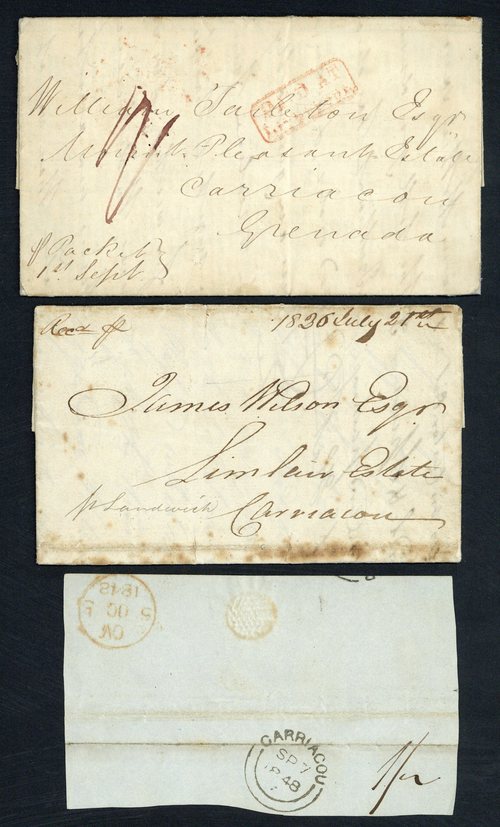 William Tarleton Esqr
Mount Pleasant Estate
Carriacou
Grenada
p Packet
1st Sept
PAID AT
Recd p
1836 July 21st
James Wilson Esqr
Limlair Estate
Carriacou
p Sandwich
1848
5 OC 5
CARRIACOU
SP 7
1848
1/2